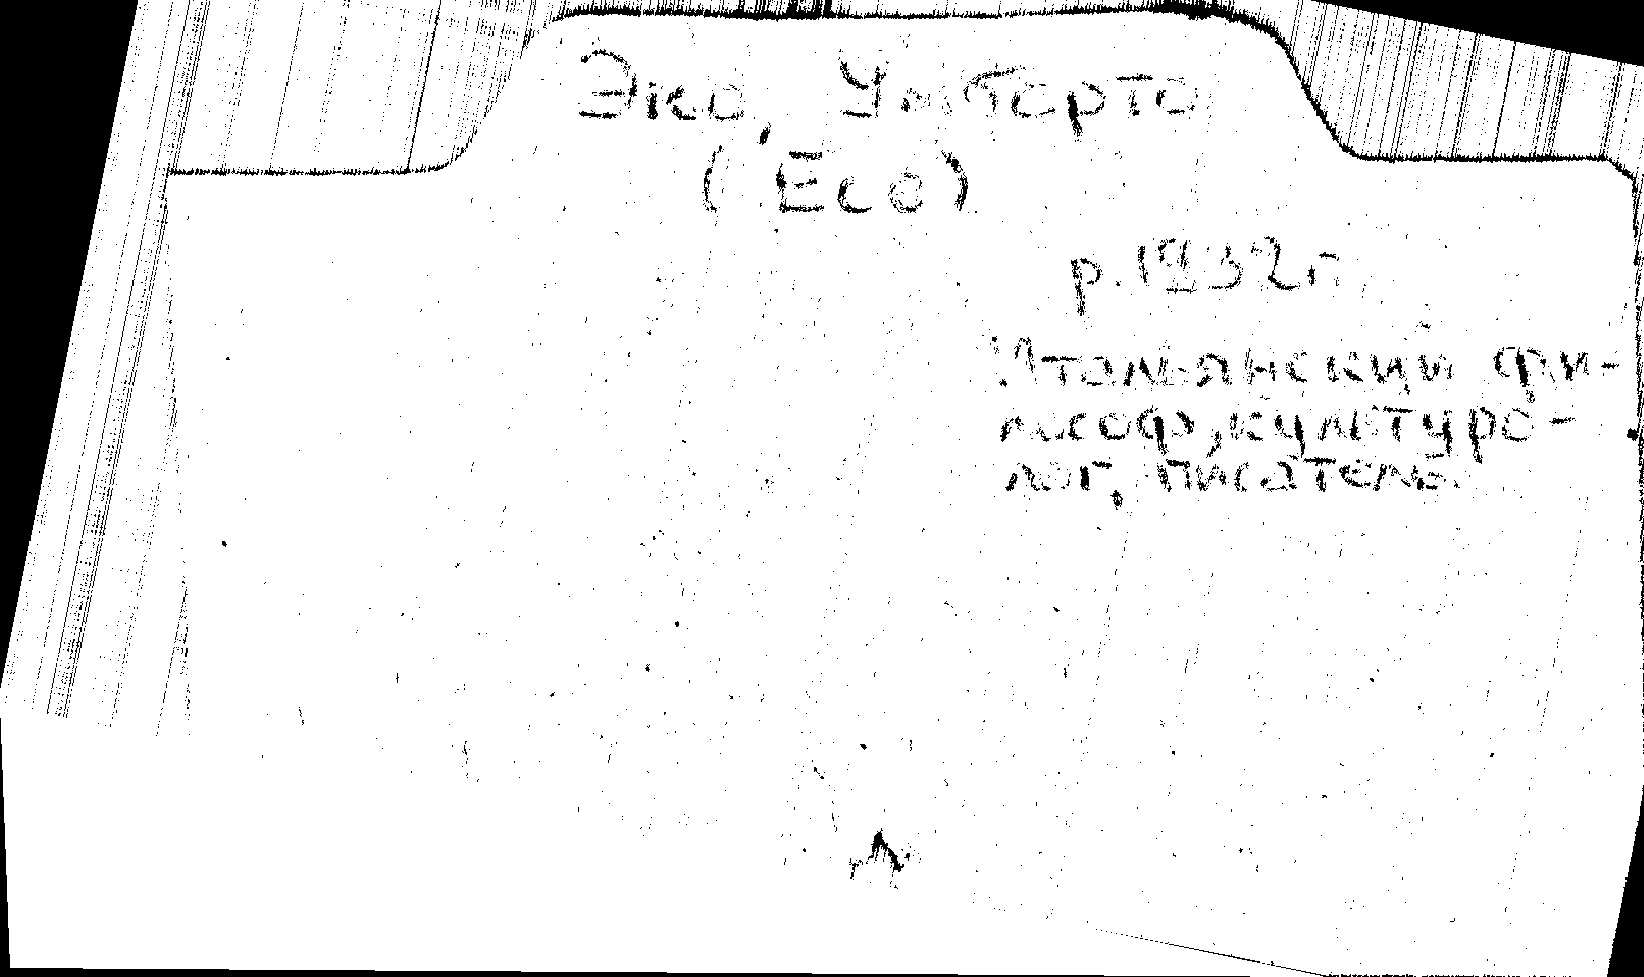 Эко, Умберто
(Eco)
р. 1932 г.
Итальянский фи-
лософ, культуро-
лог, писатель.